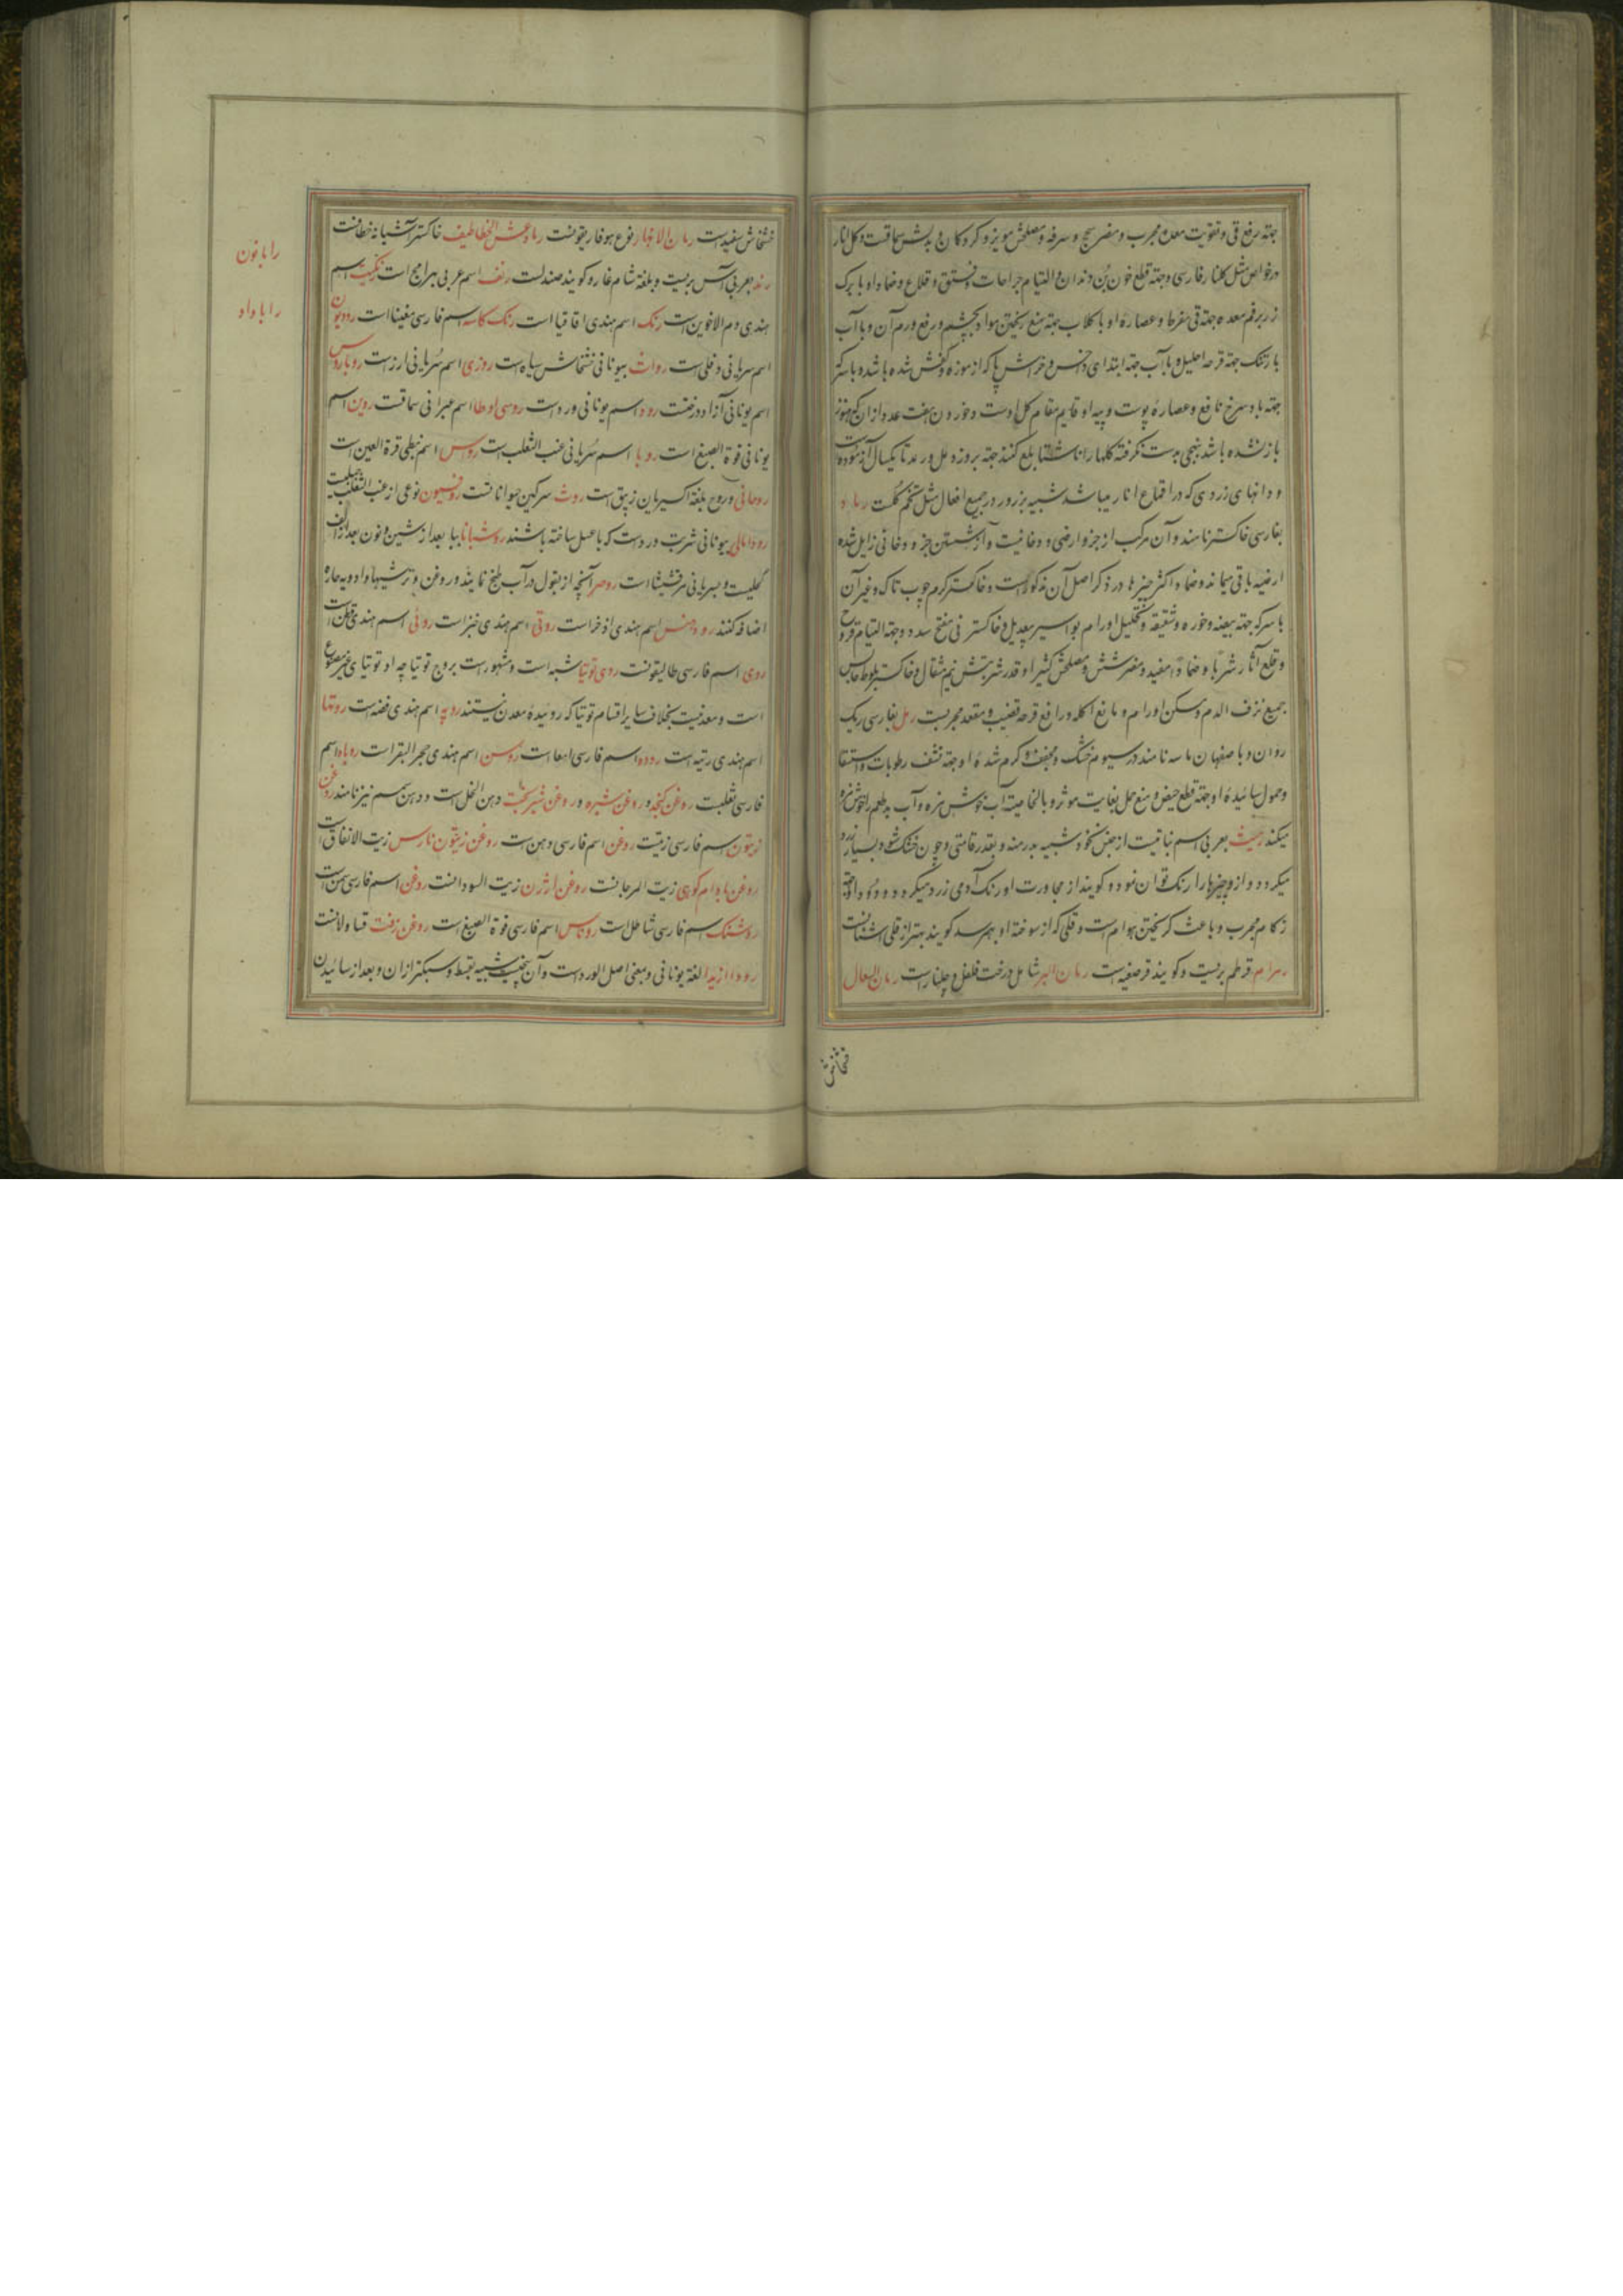 جهته رفع قی و تقویت معده مجرب و مضر سحج و سرفه و مصلحش مویز و کردکان و بدلش سماقست و کل انار
در خواص مثل کلنار فارسی و جهته قطع خون بن دندان و التیام جراحات و فتق و قلاع و ضماد او با برک
زر بر فم معده جهته قی مفرط و عصاره او با کلاب جهته منع ریختن مواد بچشم و رفع ورم آن و با آب
بارتنک جهته قرحه احلیل و با آب جهته ابتدای داحس و خراش پا که از موزه و کفش شده باشد و با سرکه
جهته باد سرخ نافع و عصاره پوست و پیه او قایم مقام کل اوست و خوردن هفت عدد از ان که هنوز
باز نشده باشد بنهجی بدست نکرفته کلها را ناشتا بلع کنند جهته بروز دمل و رمد تا یکسال آزموده است
و دانهای زردی که در اقماع انار میباشد شبیه ببزر ورد در جمیع افعال مثل تخم کلست رماد
بفارسی خاکستر نامند و آن مرکب از جزو ارضی و دخانیت و از شستن جزو دخانی زایل شده
ارضیه باقی میماند و ضماد اکثر چیزها در ذکر اصل آن مذکور است و خاکستر کرم چوب تاک و غیر آن
با سرکه جهته بیضه و خوره و شقیقه و تحلیل اورام بواسیر بیعدیل و خاکستر نی مفتح سدد و جهته التیام قروح
و قلع آثار شربا و ضمادا مفید و مضر شش و مصلحش کثیرا و قدر شربتش نیم مثقال و خاکستر بلوط حابس
جمیع نزف الدم و مسکن اورام و مانع اکله و رافع قرحه قضیب و مقعد مجربست رمل بفارسی ریک
روان و باصفهان ماسه نامند در سیوم خشک و مجفف و کرم شده او جهته نشف رطوبات و استسقا
و حمول سائیده او جهته قطع حیض و منع حمل بغایت موثر و بالخاصیه آب خوش مزه و آب بدطعم را خوش مزه
میکند رمث بعربی اسم نباتیست از جنس نخود شبیه بدرمنه و بقدر قامتی و چون خشک شود بسیار زرد
میکردد و از و چیزها را رنک توان نمود و کویند از مجاورت او رنک آدمی زرد میکردد و دود او جهته
زکام مجرب و باعث کریختن هوام است و قلی که از سوخته او بهم رسد کویند بهتر از قلی اشنانست
رمرام قرطم بریست و کویند قرصفیه است رمان البر شامل درخت فلفل و جلنار است رمان السعال
خشخاش
خشخاش سفید است رمان الانهار نوع هوفاریقونست رماد عش الخطاطیف خاکستر آشیانه خطافست
رند بعربی آس بریست و بلغة شام غار و کویند صندلست رنف اسم عربی بهرامج است رنکیت اسم
هندی دم الاخوین است رنک اسم هندی اقاقیا است رنک کاسه اسم فارسی مغنیسا است رودیون
اسم سریانی دفلی است رواث بیونانی خشخاش سیاه است روزی اسم سریانی ارز است روباروس
اسم یونانی آزاد درختست رود اسم یونانی ورد است روسی اوطا اسم عبرانی سماقست روین اسم
یونانی فوة الصبغ است روبا اسم سریانی عنب الثعلب است روس اسم نبطی قرة العین است
روحانی و روح بلغة اکسیریان زیبق است روث سرکین حیواناتست روفسیون نوعی از عنب الثعلب جبلیست
رودامالی بیونانی شربت ورد است که با عسل ساخته باشند روشبانا ببا بعد از شین و نون بعد از الف
کلیست و بسریانی مرقشیثا است روصر آنچه از بقول در آب طبخ نمایند و روغن و ترشیها و ادویه حاره
اضافه کنند رودهنس اسم هندی اذخر است روتی اسم هندی خبز است روئی اسم هندی قطن است
روی اسم فارسی طالیقونست روی توتیا شبه است و مشهور است بروح توتیا چه او توتیای غیر مصنوع
است و معدنیست بخلاف سایر اقسام توتیا که روئیده معدن نیستند روپه اسم هندی فضه است روتها
اسم هندی رته است روده اسم فارسی امعا است روسن اسم هندی حجر البقر است روباه اسم
فارسی ثعلبست روغن کنجد و روغن شیره و روغن شیربخت دهن الخل است و دهن سمسم نیز نامند روغن
زیتون اسم فارسی زیتست روغن اسم فارسی دهن است روغن زیتون نارس زیت الانفاق است
روغن بادام کوهی زیت الهرجانست روغن ارژن زیت السودانست روغن اسم فارسی سمن است
روشنک اسم فارسی شاطل است روناس اسم فارسی فوة الصبغ است روغن زفت قساولانست
رودا ازیدا لغة یونانی و بمعنی اصل الورد است و آن بیخیست شبیه بقسط و سبکتر از ان و بعد از سائیدن
رابانون
راباواد